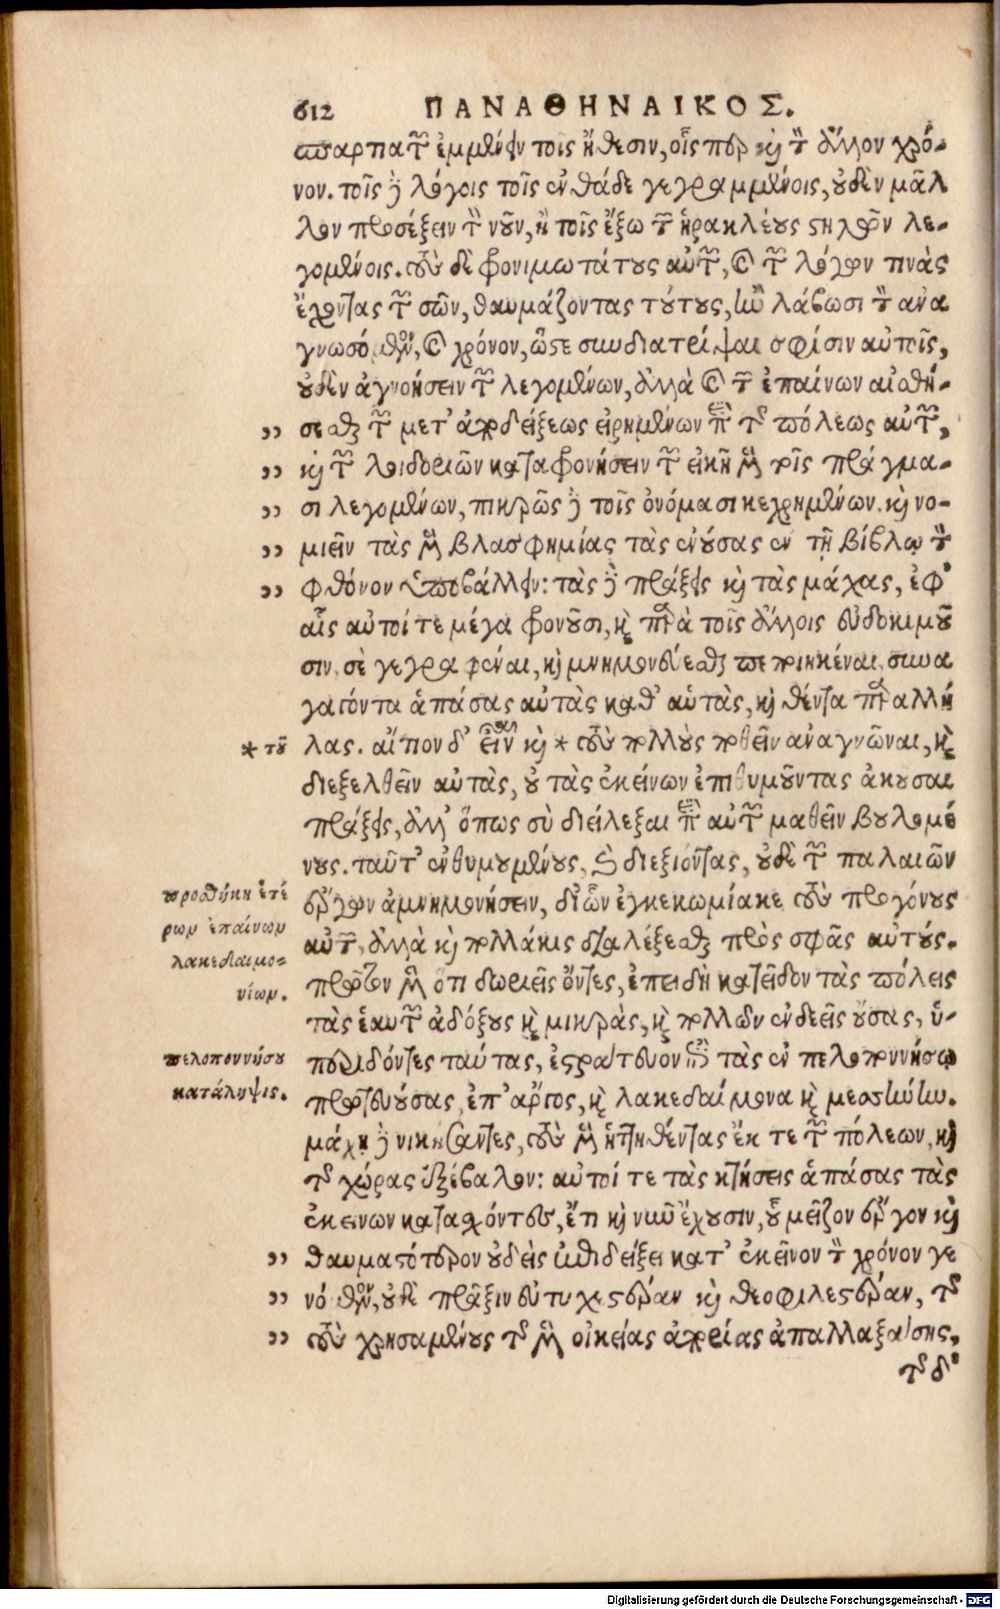 612 ΠΑΝΑΘΗΝΑΙΚΟΣ.
σπαρτιατῶν ἐμμενεῖν τοῖς ἤθεσιν, οἷς περ καὶ τὸν ἄλλον χρό-
νον. τοῖς δὲ λόγοις τοῖς ἐνθάδε γεγραμμένοις, οὐδὲν μᾶλ
λον προσέξειν τὸν νοῦν, ἢ τοῖς ἔξω τῶν ἡρακλέους στηλῶν λε-
γομένοις. τοὺς δὲ φρονιμωτάτους αὐτῶν, καὶ τῶν λόγων τινὰς
ἔχοντας τῶν σῶν, θαυμάζοντας τούτους, ἢν λάβωσι τὸν ἀνα
γνωσόμενον, καὶ χρόνον, ὥστε συνδιατρίψαι σφίσιν αὐτοῖς,
οὐδὲν ἀγνοήσειν τῶν λεγομένων, ἀλλὰ καὶ τῶν ἐπαίνων αἰσθή-
„ σεσθαι τῶν μετ᾽ ἀποδείξεως εἰρημένων περὶ τῆς πόλεως αὐτῶν,
„ καὶ τῶν λοιδοριῶν καταφρονήσειν τῶν εἰκῆ μὲν τοῖς πράγμα-
„ σι λεγομένων, πικρῶς δὲ τοῖς ὀνόμασι κεχρημένων. καὶ νο-
„ μιεῖν τὰς μὲν βλασφημίας τὰς ἐνούσας ἐν τῇ βίβλῳ τὸν
„ φθόνον ὑποβάλλειν: τὰς δὲ πράξεις καὶ τὰς μάχας, ἐφ᾽
αἷς αὐτοί τε μέγα φρονοῦσι, καὶ παρὰ τοῖς ἄλλοις εὐδοκιμοῦ
σιν, σὲ γεγραφέναι, καὶ μνημονεύεσθαι πεποιηκέναι, συνα
γαγόντα ἁπάσας αὐτὰς καθ᾽ αὑτὰς, καὶ θέντα παρ᾽ ἀλλή
* τοῦ λας. αἴτιον δ᾽ εἶναι καὶ * τοὺς πολλοὺς ποθεῖν ἀναγνῶναι, καὶ
διεξελθεῖν αὐτὰς, οὐ τὰς ἐκείνων ἐπιθυμοῦντας ἀκοῦσαι
πράξεις, ἀλλ᾽ ὅπως σὺ διείλεξαι περὶ αὐτῶν μαθεῖν βουλομέ
νους. ταῦτ᾽ ἐνθυμουμένους, καὶ διεξιόντας, οὐδὲ τῶν παλαιῶν
προσθήκη ἑτέ
ρων ἐπαίνων
λακεδαιμο-
νίων.
ἔργων ἀμνημονήσειν, δι᾽ ὧν ἐγκεκωμίακε τοὺς προγόνους
αὐτῶν, ἀλλὰ καὶ πολλάκις διαλέξεσθαι πρὸς σφᾶς αὐτούς.
πρῶτον μὲν ὅτι δωριεῖς ὄντες, ἐπειδὴ κατεῖδον τὰς πόλεις
τὰς ἑαυτῶν ἀδόξους καὶ μικρὰς, καὶ πολλῶν ἐνδεεῖς οὔσας, ὑ-
πελοποννήσου
κατάληψις.
περιδόντες ταύτας, ἐστράτευον ἐπὶ τὰς ἐν πελοποννήσῳ
πρωτευούσας, ἐπ᾽ ἄργος, καὶ λακεδαίμονα καὶ μεσσήνην.
μάχῃ δὲ νικήσαντες, τοὺς μὲν ἡττηθέντας ἔκ τε τῶν πόλεων, καὶ
τῆς χώρας ἐξέβαλον: αὐτοί τε τὰς κτήσεις ἁπάσας τὰς
ἐκείνων κατασχόντες, ἔτι καὶ νῦν ἔχουσιν, οὗ μεῖζον ἔργον καὶ
„ θαυμαστότερον οὐδεὶς ἐπιδείξει κατ᾽ ἐκεῖνον τὸν χρόνον γε
„ νόμενον, οὐδὲ πρᾶξιν εὐτυχεστέραν καὶ θεοφιλεστέραν, τῆς
„ τοὺς χρησαμένους τῆς μὲν οἰκείας ἀπορίας ἀπαλλαξάσης,
τῆς δ᾽
Digitalisierung gefördert durch die Deutsche Forschungsgemeinschaft - DFG